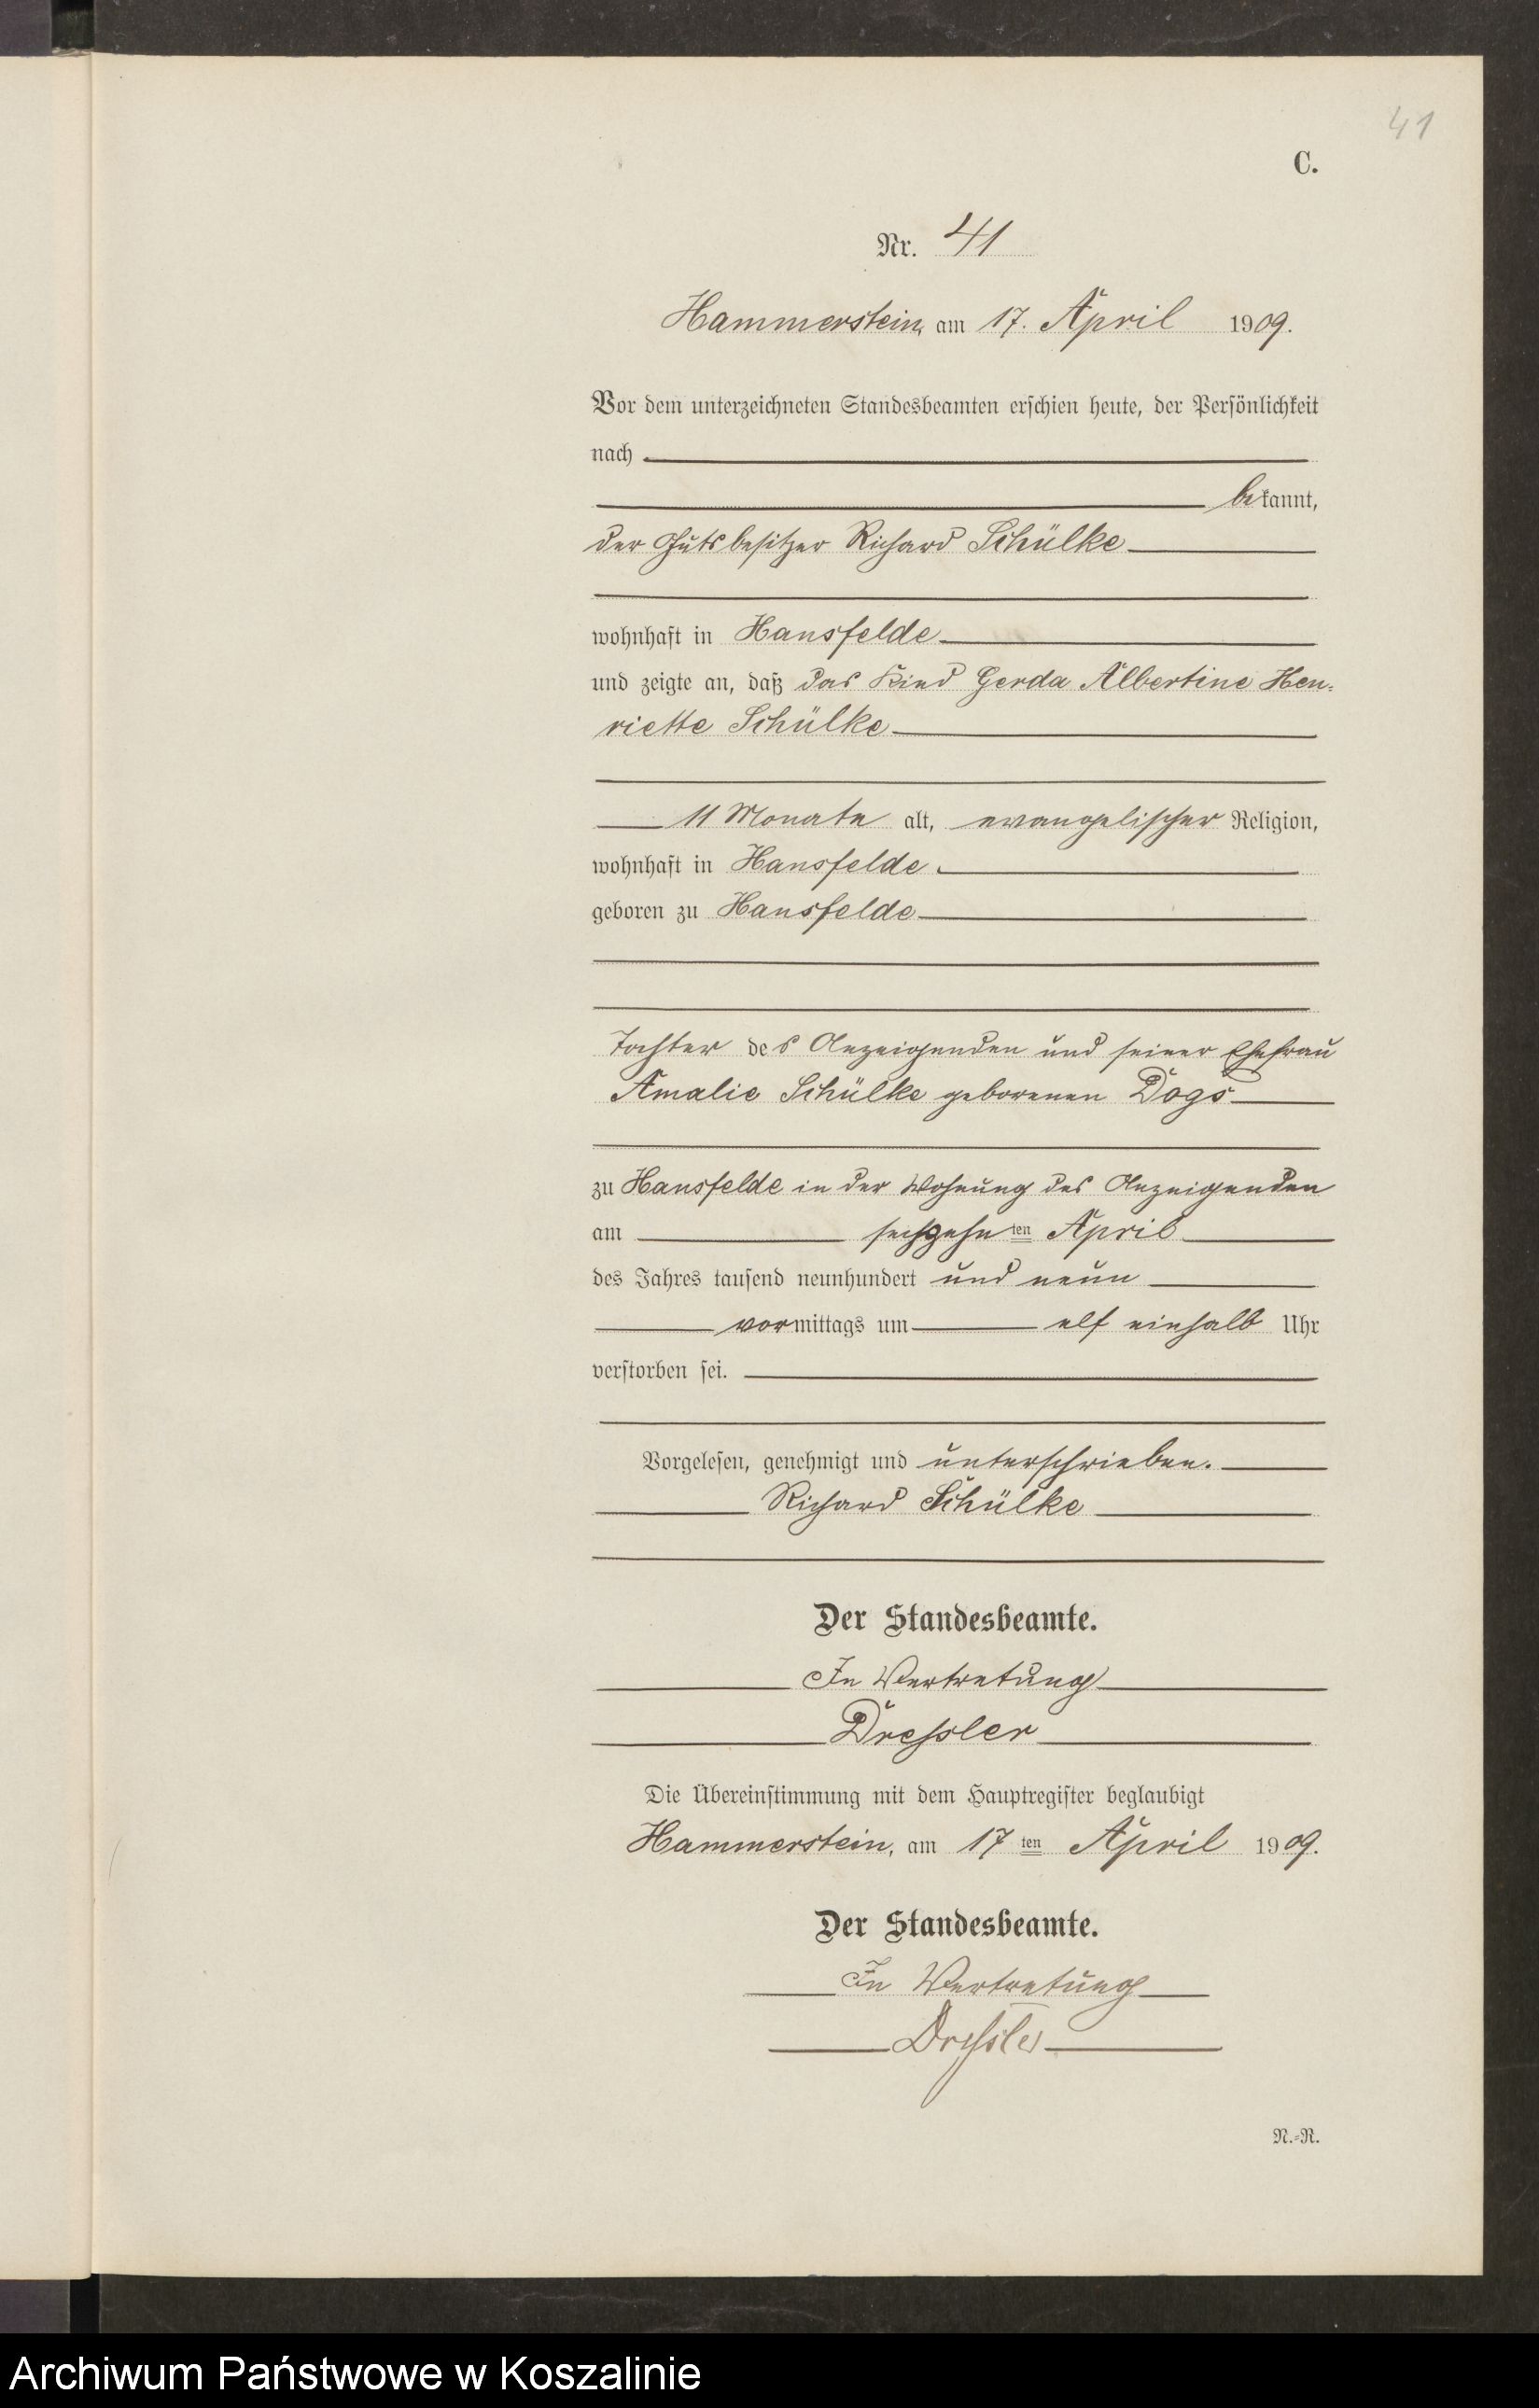 41
C.
Nr. 41
Hammerstein, am 17. April 1909.
Vor dem unterzeichneten Standesbeamten erschien heute, der Persönlichkeit
nach
bekannt,
der Gutsbesitzer Richard Schülke
wohnhaft in Hansfelde
und zeigte an, daß das Kind Gerda Albertine Hen-
riette Schülke
11 Monate alt, evangelischer Religion,
wohnhaft in Hansfelde
geboren zu Hansfelde
Tochter des Anzeigenden und seiner Ehefrau
Amalie Schülke geborenen Dogs
zu Hansfelde in der Wohnung des Anzeigenden
am sechzehnten April
des Jahres tausend neunhundert und neun
vormittags um elf einhalb Uhr
verstorben sei.
Vorgelesen, genehmigt und unterschrieben.
Richard Schülke
Der Standesbeamte.
In Vertretung
Dressler
Die Übereinstimmung mit dem Hauptregister beglaubigt
Hammerstein, am 17ten April 1909.
Der Standesbeamte.
In Vertretung
Dressler
N.-R.
Archiwum Państwowe w Koszalinie